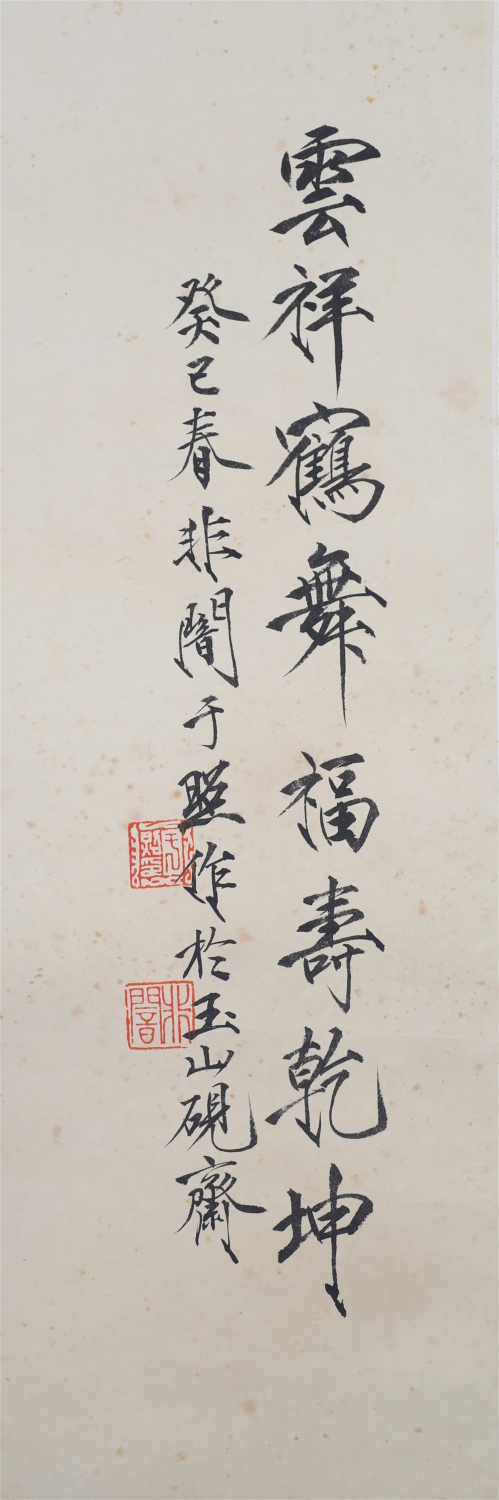 雲祥鶴舞福壽乾坤
癸巳春非闇于照作於玉山硯齋
非闇